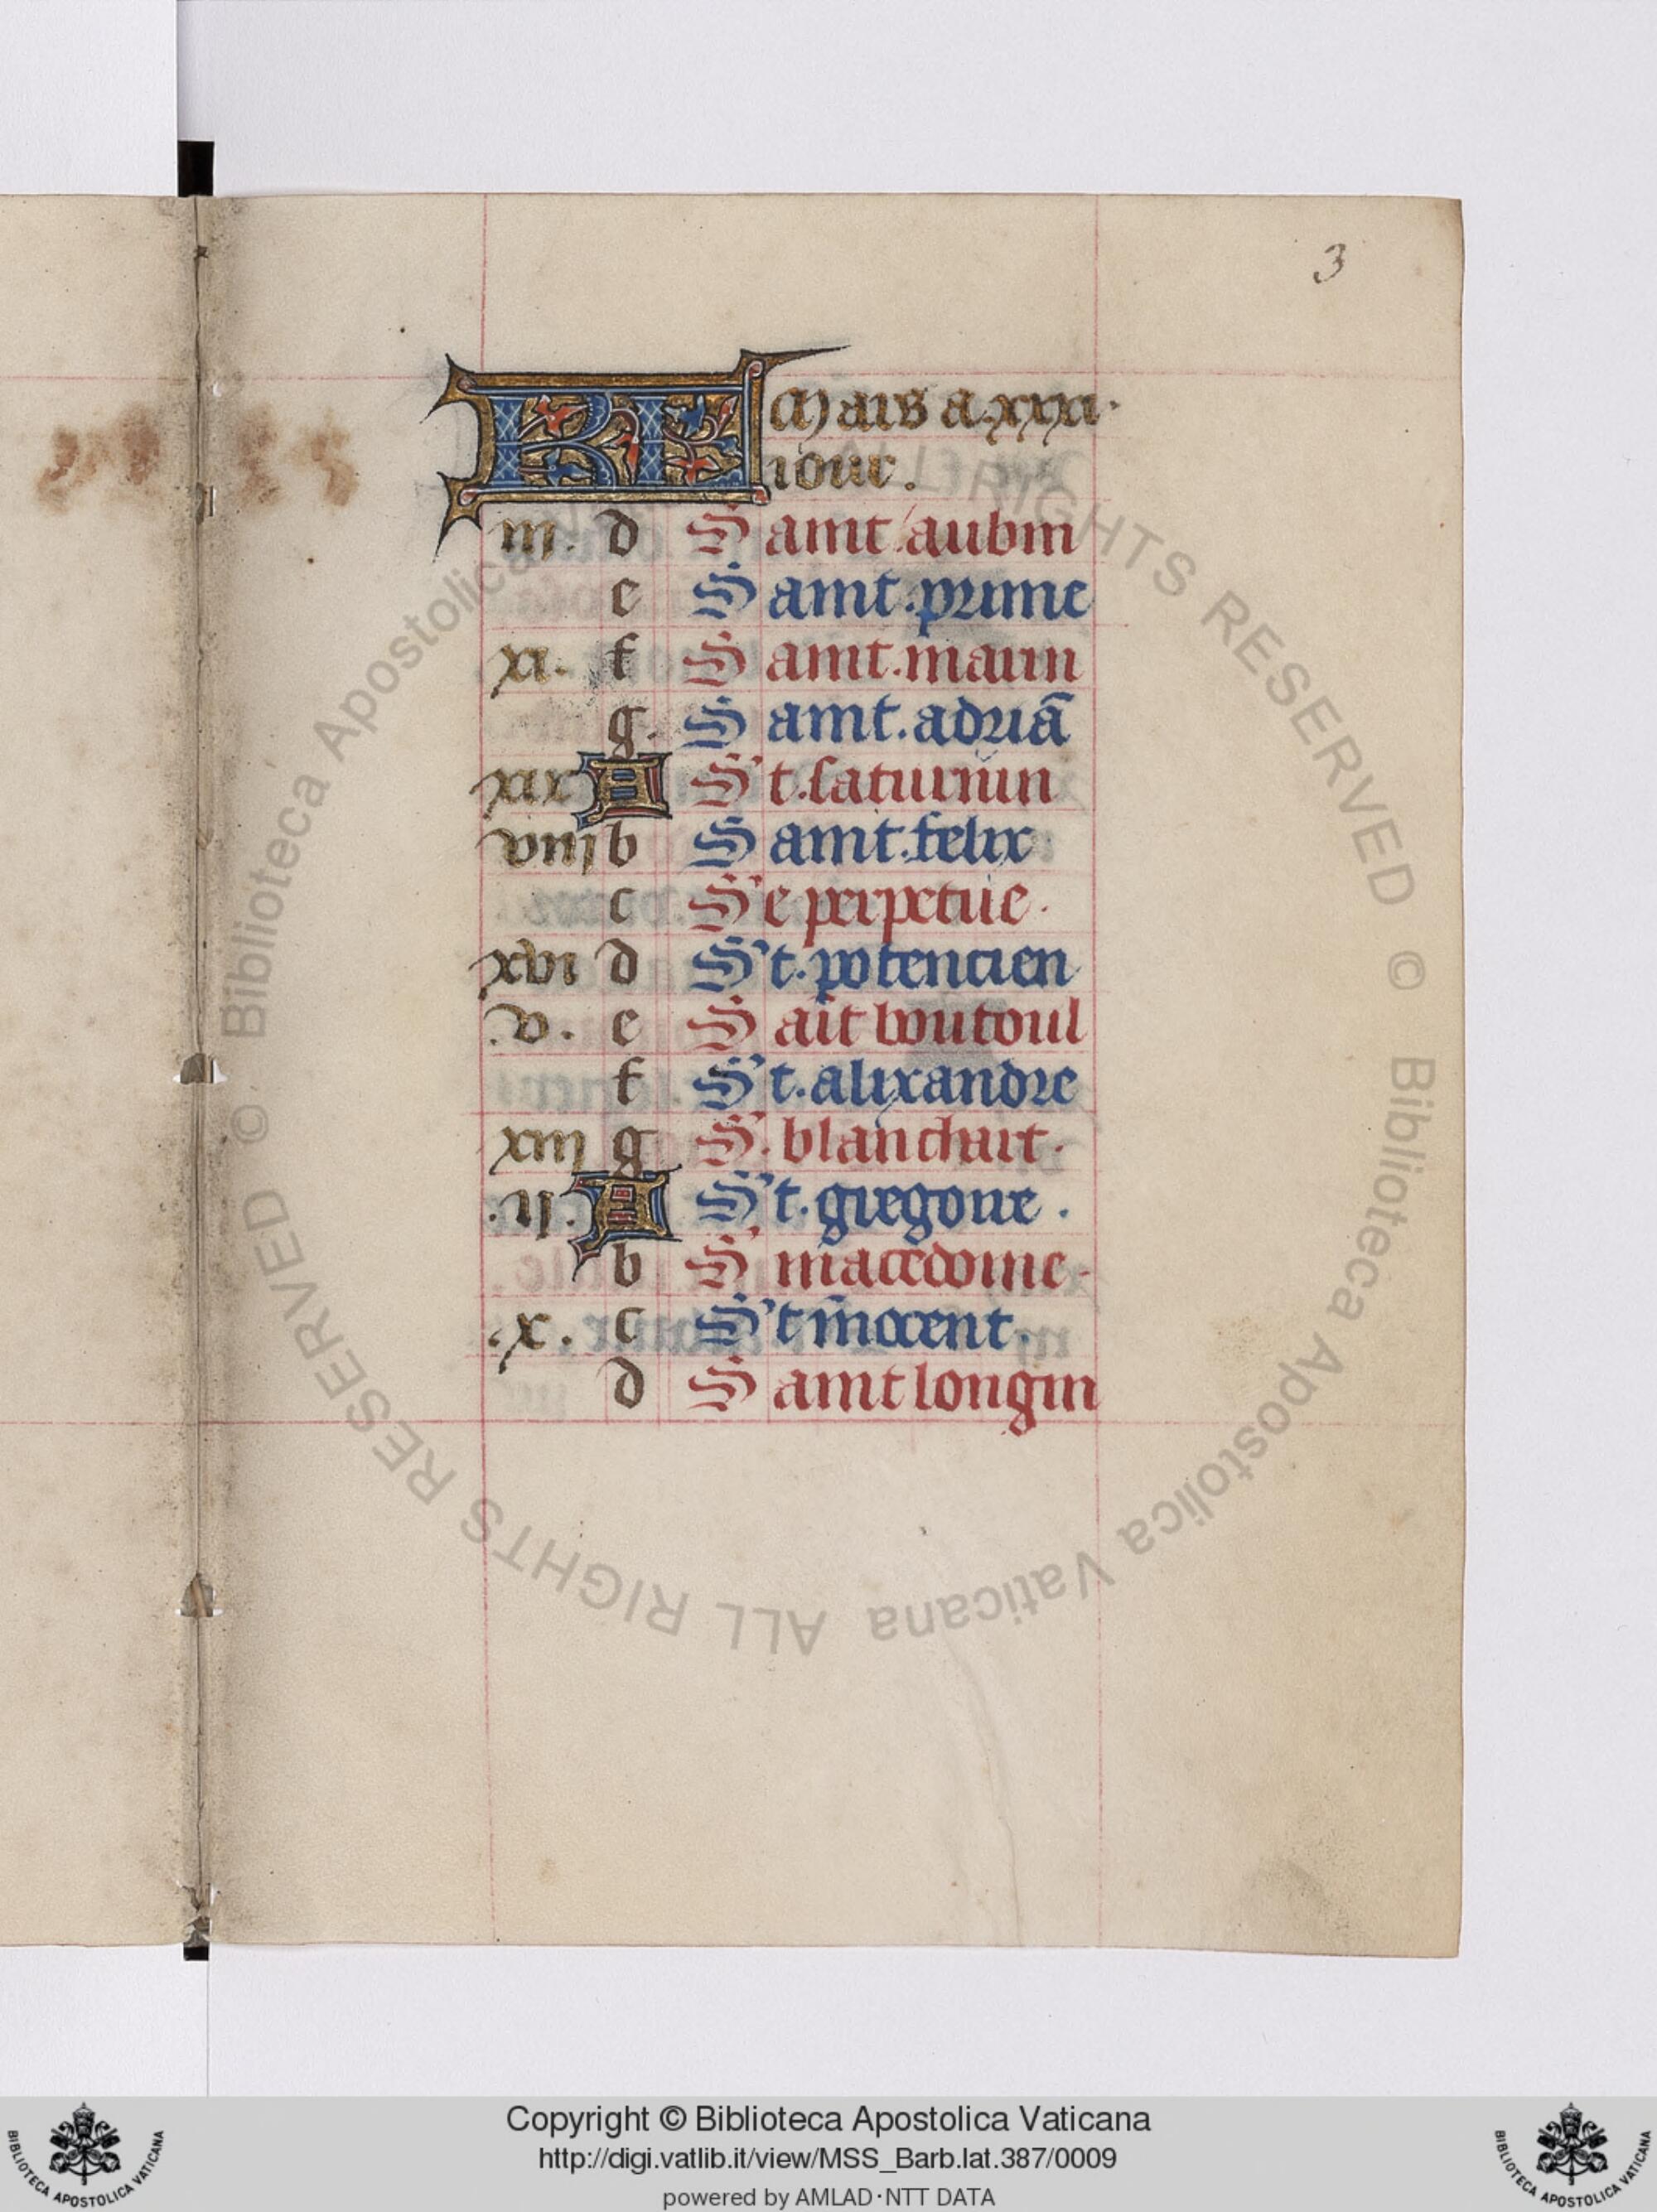 3
KL Mars a.xxxi.
iour.
iii. d Saint aubin
e Saint.prime
xi. f Saint.marin
g. Saint.adriā
xix A S't.saturnin
viiij b Saint.felix
c S'e perpetue.
xvi d S't.potencien
.v. e Sait boutoul
f S't.alixandre
xiij g S.blanchart.
.ij. A S't.gregoire.
b S' macedoine.
.x. c S't īnocent.
d Saint longin
© Biblioteca Apostolica Vaticana ALL RIGHTS RESERVED © Biblioteca Apostolica Vaticana ALL RIGHTS RESERVED
Copyright © Biblioteca Apostolica Vaticana
http://digi.vatlib.it/view/MSS_Barb.lat.387/0009
powered by AMLAD·NTT DATA
BIBLIOTECA APOSTOLICA VATICANA
BIBLIOTECA APOSTOLICA VATICANA